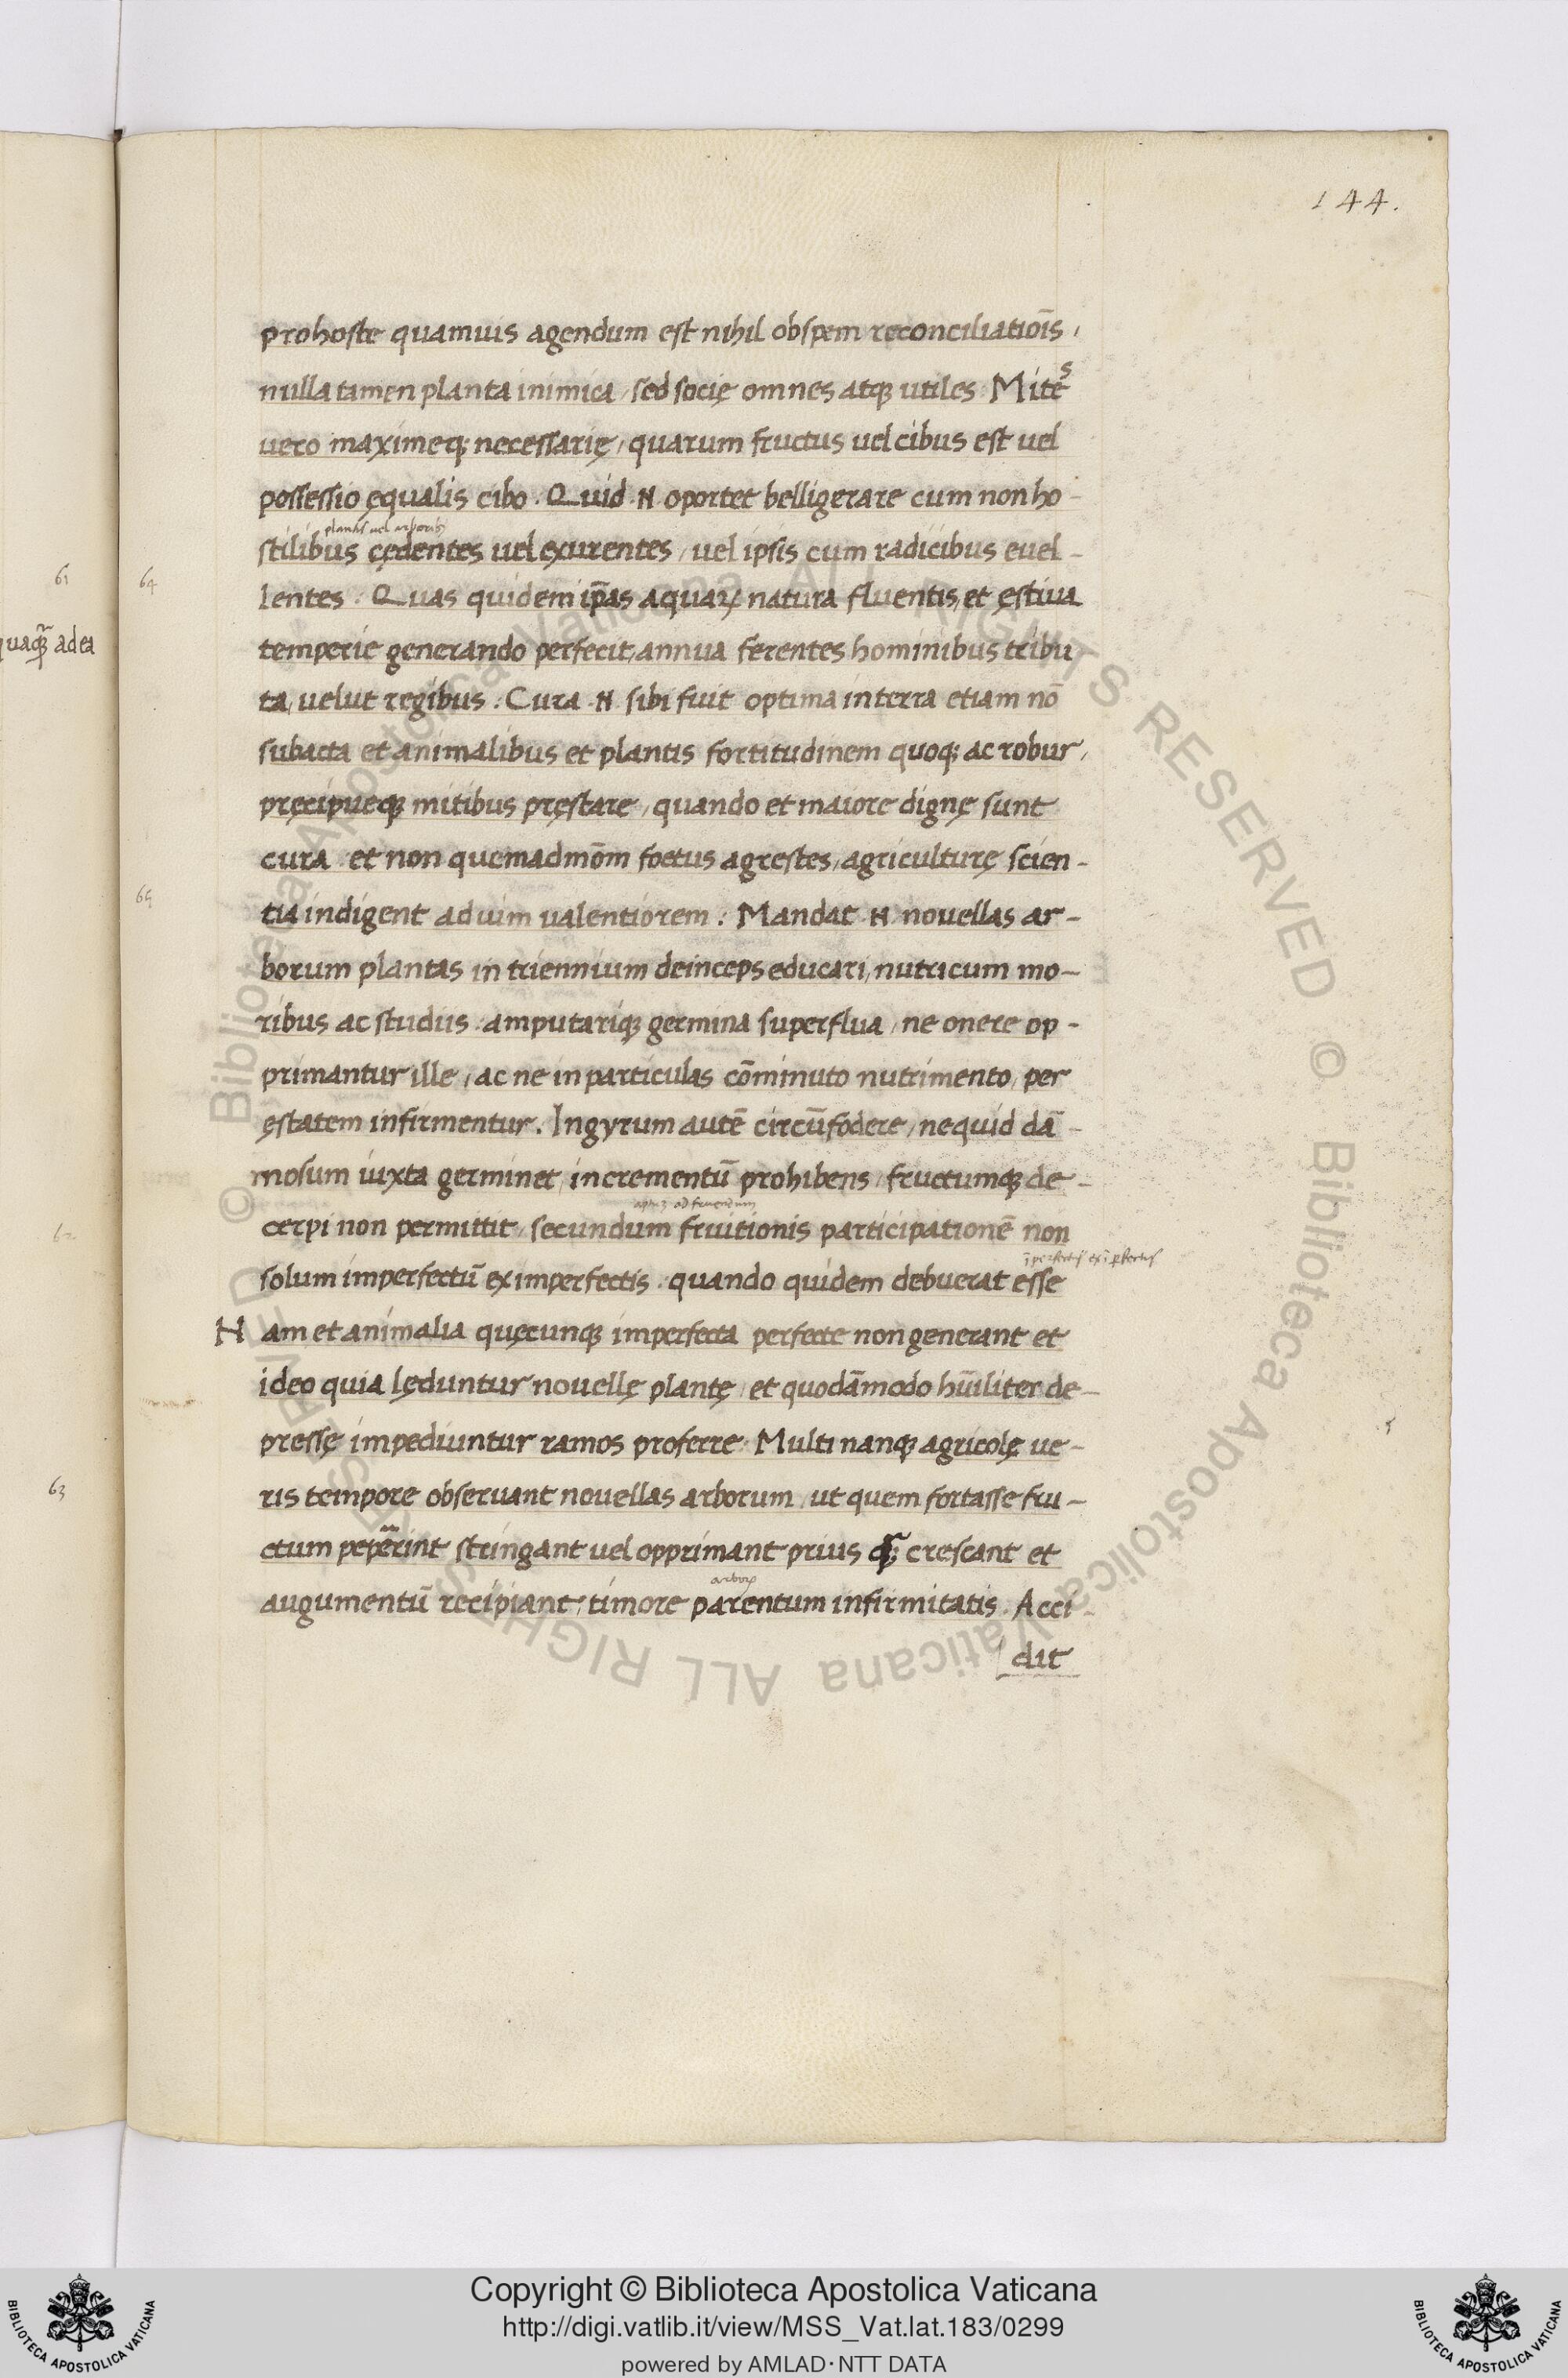 144.
prohoste quamuis agendum est nihil obspem reconciliatioīs,
nulla tamen planta inimica, sed socię omnes atq; utiles. Mites
uero maximeq; necessarię, quarum fructus uel cibus est uel
possessio ęqualis cibo. Quid .N. oportet belligerare cum non ho-
plantis uel arboribus
stilibus cędentes uel exurentes, uel ipsis cum radicibus euel-
61
64
lentes. Quas quidem ip̄as aquaꝝ natura fluentis, et ęstiua
quaq; adea
temperie generando perfecit, annua ferentes hominibus tribu
ta, uelut regibus. Cura .N. sibi fuit optima in terra etiam nō
subacta et animalibus et plantis fortitudinem quoq; ac robur,
pręcipueq; mitibus pręstare, quando et maiore dignę sunt
cura. et non quemadmōm foetus agrestes, agriculturę scien-
65
tia indigent ad uim ualentiorem. Mandat .N. nouellas ar-
borum plantas in triennium deinceps educari, nutricum mo-
ribus ac studiis. amputariq; germina superflua, ne onere op-
primantur ille, ac ne in particulas cōminuto nutrimento, per
ęstatem infirmentur. Ingyrum autē circūfodere, nequid dā-
mosum iuxta germinet, incrementū prohibens, fructumq; de-
62
cerpi non permittit, secundum fruitionis participationē non
solum imperfectū ex imperfectis. quando quidem debuerat esse
Nam et animalia quęcunq; imperfecta perfecte non generant et
ideo quia lęduntur nouellę plantę, et quodāmodo hūiliter de-
pressę impediuntur ramos proferre. Multi nanq; agricolę ue-
63
ris tempore obseruant nouellas arborum, ut quem fortasse fru-
ctum pepērint stringant uel opprimant prius q̄ crescant et
arboꝝ
augumentū recipiant, timore parentum infirmitatis. Acci-
dit
© Biblioteca Apostolica Vaticana ALL RIGHTS RESERVED © Biblioteca Apostolica Vaticana ALL RIGHTS RESERVED
Copyright © Biblioteca Apostolica Vaticana
http://digi.vatlib.it/view/MSS_Vat.lat.183/0299
powered by AMLAD·NTT DATA
BIBLIOTECA APOSTOLICA VATICANA
BIBLIOTECA APOSTOLICA VATICANA